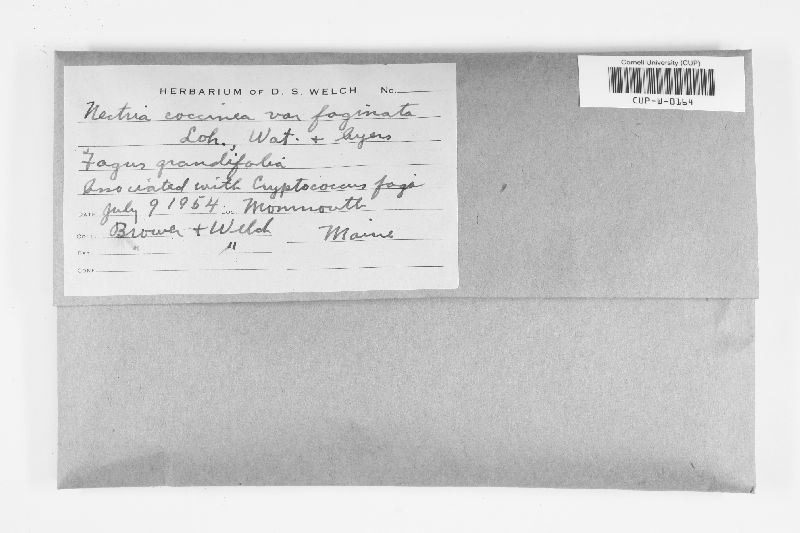 HERBARIUM OF D. S. WELCH No.
Nectria coccinea var faginata
Loh., Wat. + Ayers
Fagus grandifolia
Associated with Cryptococcus fagi
DATE July 9 1954 Loc. Monmouth
COLL. Brower + Welch Maine
DET. " "
CONF.
Cornell University (CUP)
CUP-W-0164